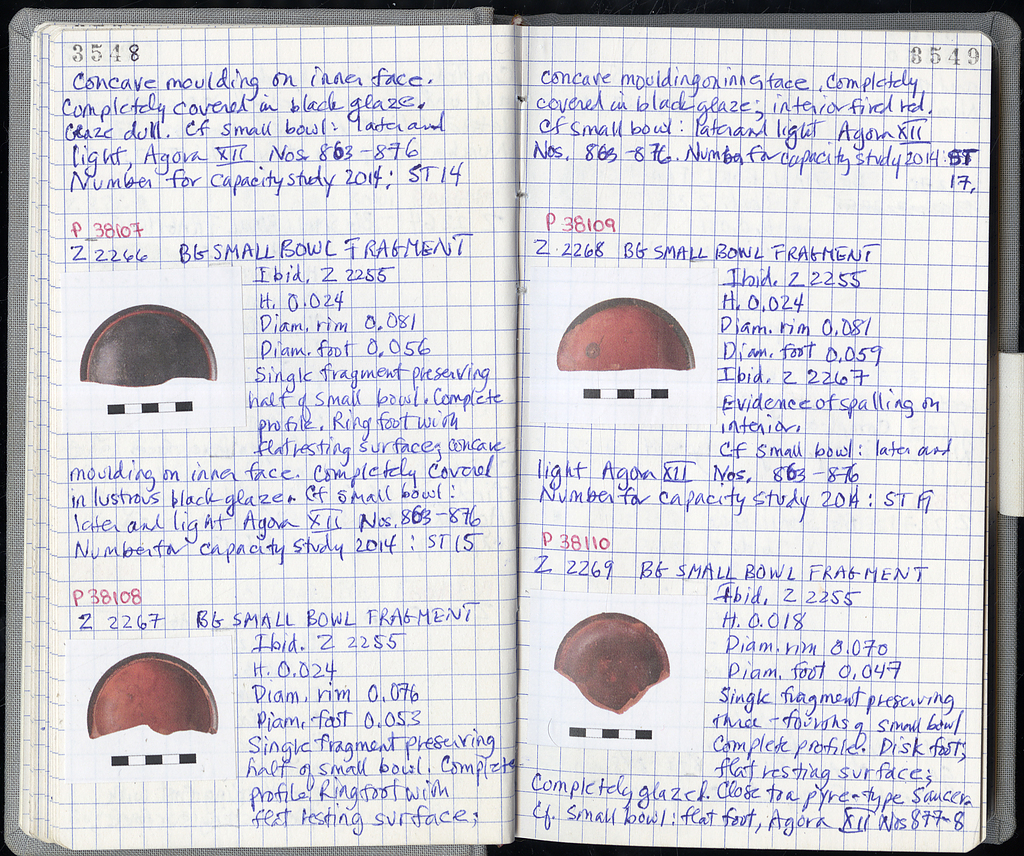 3548
Concave moulding on inner face.
Completely covered in black glaze.
Glaze dull. Cf small bowl: later and
light, Agora XII Nos. 863-876
Number for Capacity study 2014: ST 14
P 38107
Z 2266 BG SMALL BOWL FRAGMENT
Ibid. Z 2255
H. 0.024
Diam. rim 0.081
Diam. foot 0.056
Single fragment preserving
half of small bowl. Complete
profile. Ring foot with
flat resting surface; concave
moulding on inner face. Completely Covered
in lustrous black glaze. Cf small bowl:
later and light Agora XII Nos. 863-876
Number for Capacity Study 2014: ST 15
P 38108
Z 2267 BG SMALL BOWL FRAGMENT
Ibid. Z 2255
H. 0.024
Diam. rim 0.076
Diam. foot 0.053
Single fragment preserving
half of small bowl. Complete
profile. Ring foot with
flat resting surface;
3549
concave moulding on inner face. Completely
covered in black glaze; interior fired red.
Cf small bowl: later and light Agora XII
Nos. 863-876. Number for capacity study 2014: ST
17.
P 38109
Z 2268 BG SMALL BOWL FRAGMENT
Ibid. Z 2255
H. 0.024
Diam. rim 0.081
Diam. foot 0.059
Ibid. Z 2267
Evidence of spalling on
interior.
Cf small bowl: later and
light Agora XII Nos. 863-876
Number for capacity study 2014: ST
P 38110
Z 2269 BG SMALL BOWL FRAGMENT
Ibid. Z 2255
H. 0.018
Diam. rim 0.070
Diam. foot 0.047
Single fragment preserving
three-fourths of small bowl
Complete profile. Disk foot;
flat resting surface;
Completely glazed. Close to a pyre-type Saucer.
Cf. small bowl: flat foot, Agora XII Nos 877-8